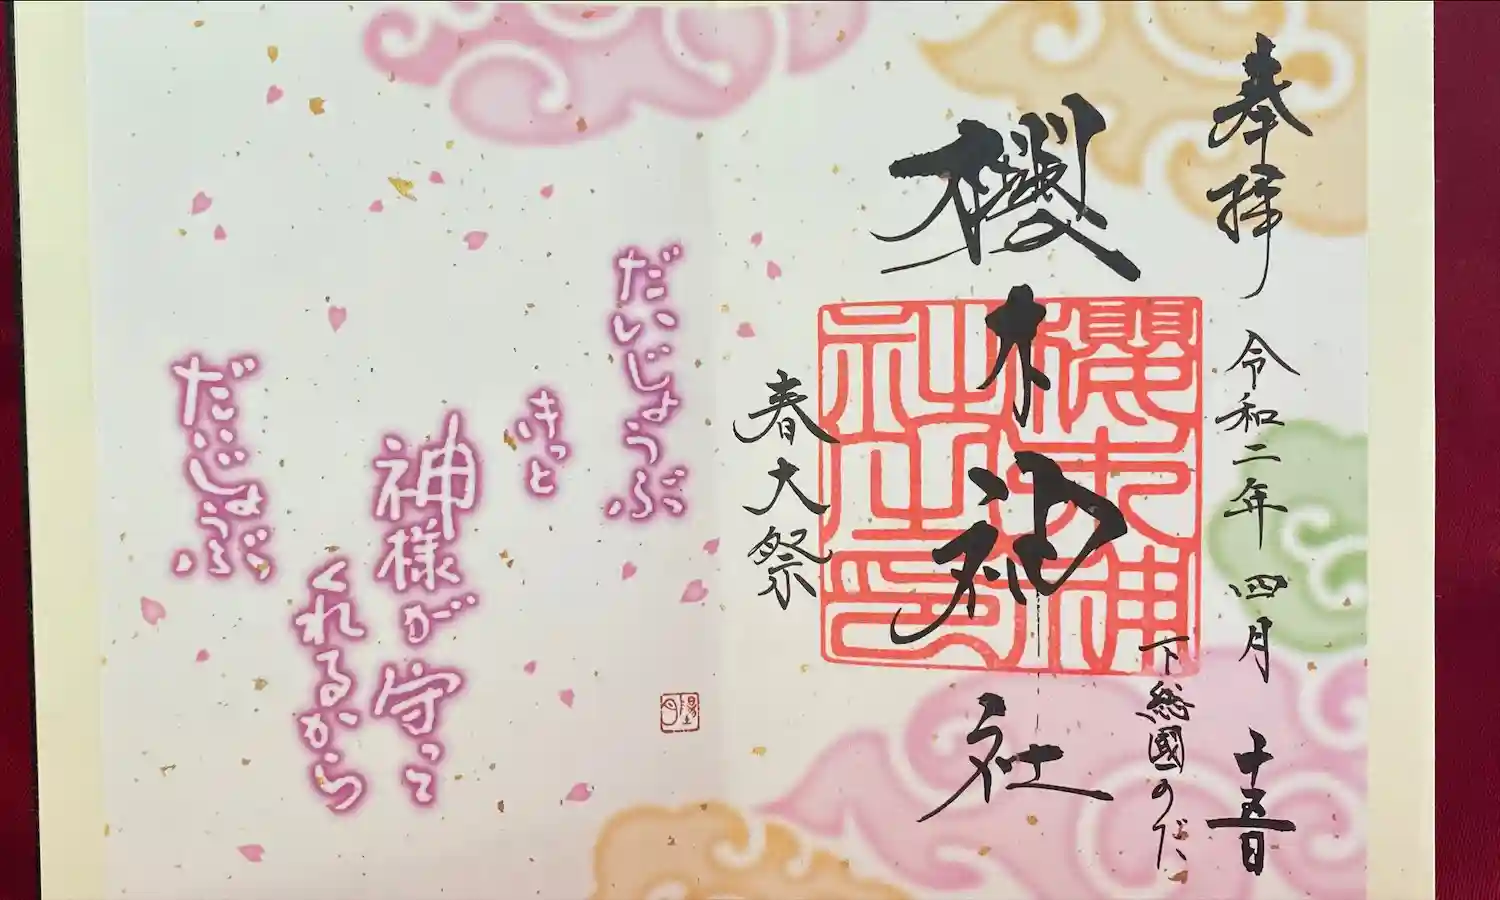 奉拝 令和二年 四月 十五日
下総國のだ
櫻木神社
櫻木神社之印
春大祭
だいじょうぶ
きっと
神様が守って
くれるから
だいじょうぶ